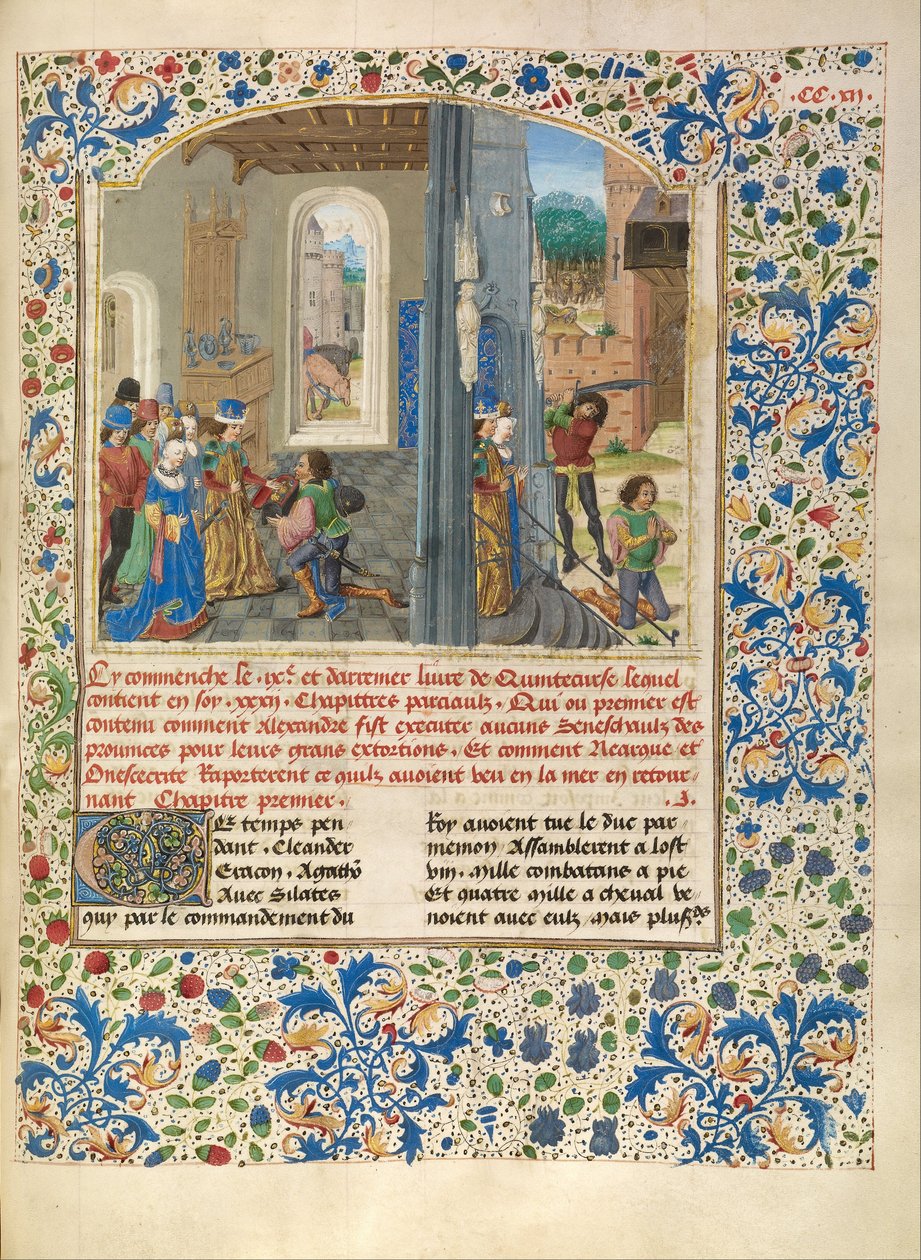 .CC.xii.
Cy commenche le .ixe. et darremier liure de Quintecurse lequel
contient en soy .xxxij. Chapittres parciaulz. Qui ou premier est
contenu comment Alexandre fist executer aucuns Seneschaulz des
prouinces pour leurs grans extortions. Et comment Nearque et
Onesecrite Raporterent ce quilz auoient veu en la mer en retour-
nant Chapitre premier. .I.
CE temps pen-
dant. Cleander
Et Avec Silates
quy par le commandement du
Roy auoient tue le duc par-
menion Assamblerent a lost
vm. Mille combatans a pie
Et quatre mille a cheual ve-
noient auec eulz, Mais plusrs